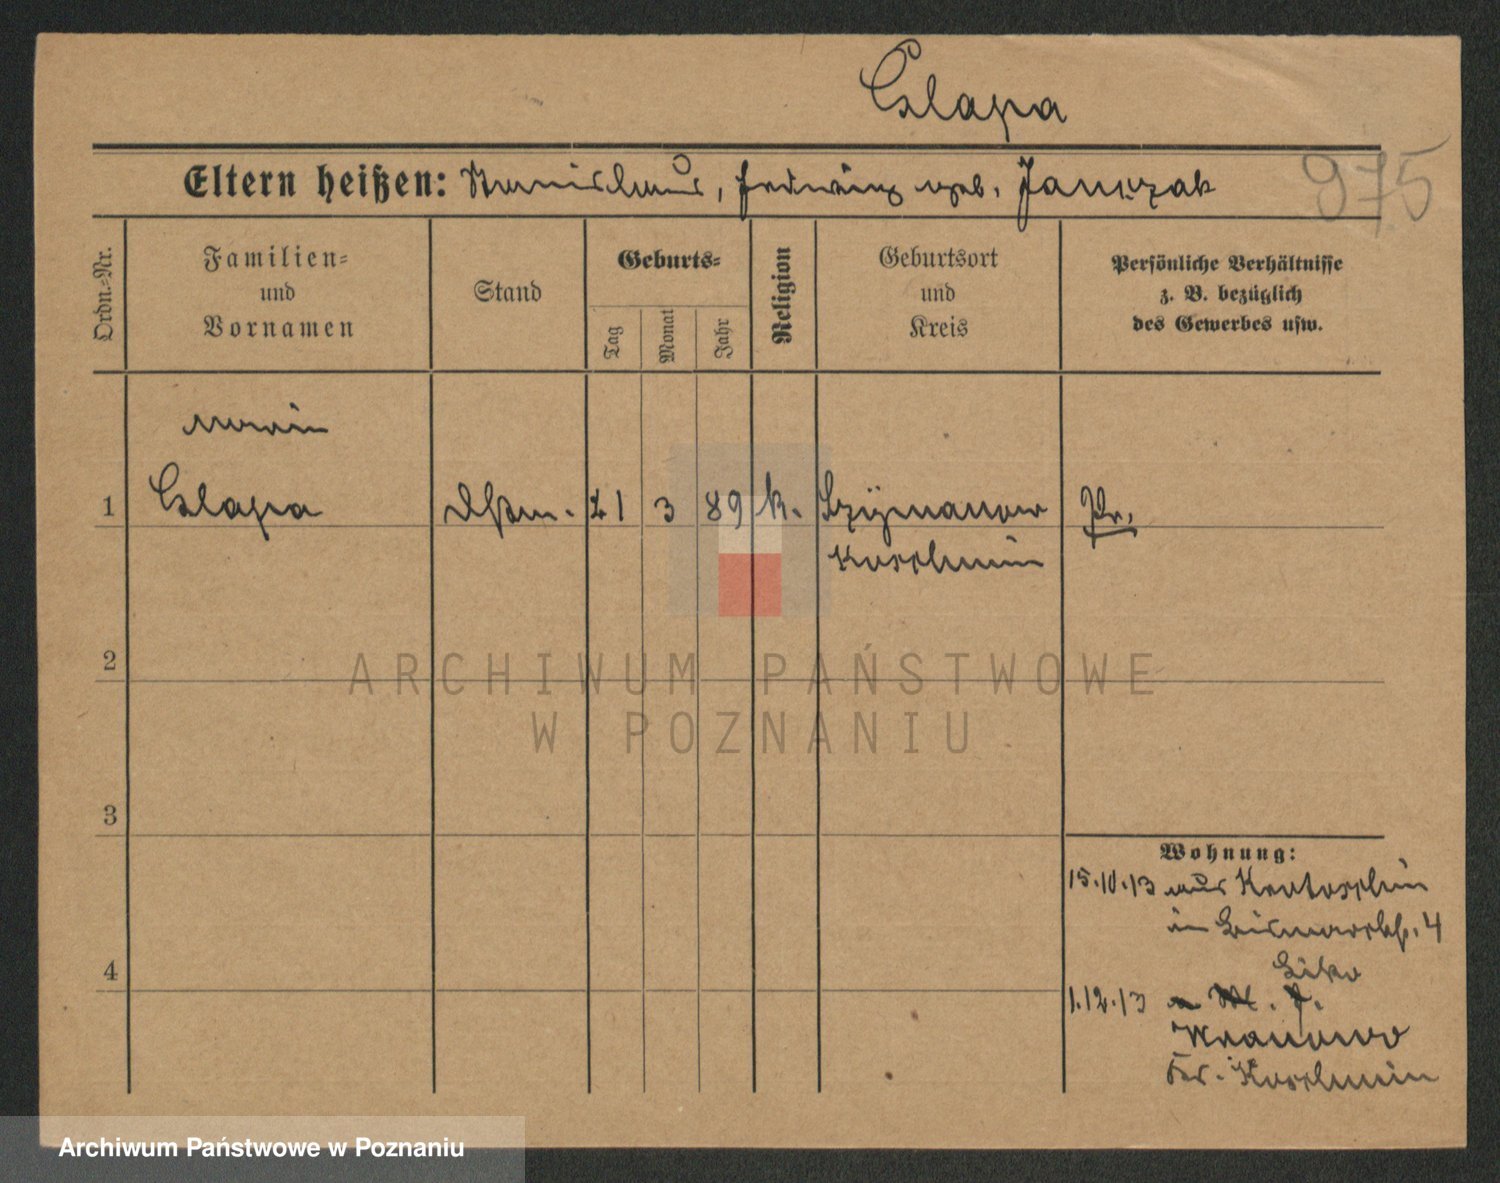 Clapa
Eltern heißen: Stanislaus, Hedwig geb. Janczak
975
Ordn.-Nr.
Familien-
und
Vornamen
Stand
Geburts-
Tag
Monat
Jahr
Religion
Geburtsort
und
Kreis
Persönliche Verhältnisse
z. B. bezüglich
des Gewerbes usw.
Maria
1 Clapa 21 3 89 k. Szymanow Pr.
Koschmin
2
3
Wohnung:
15.10.13 aus Krotoschin
in Bismarckstr. 4
4
1.12.13 n
Wranowo
Kr. Koschmin
ARCHIWUM PAŃSTWOWE
W POZNANIU
Archiwum Państwowe w Poznaniu